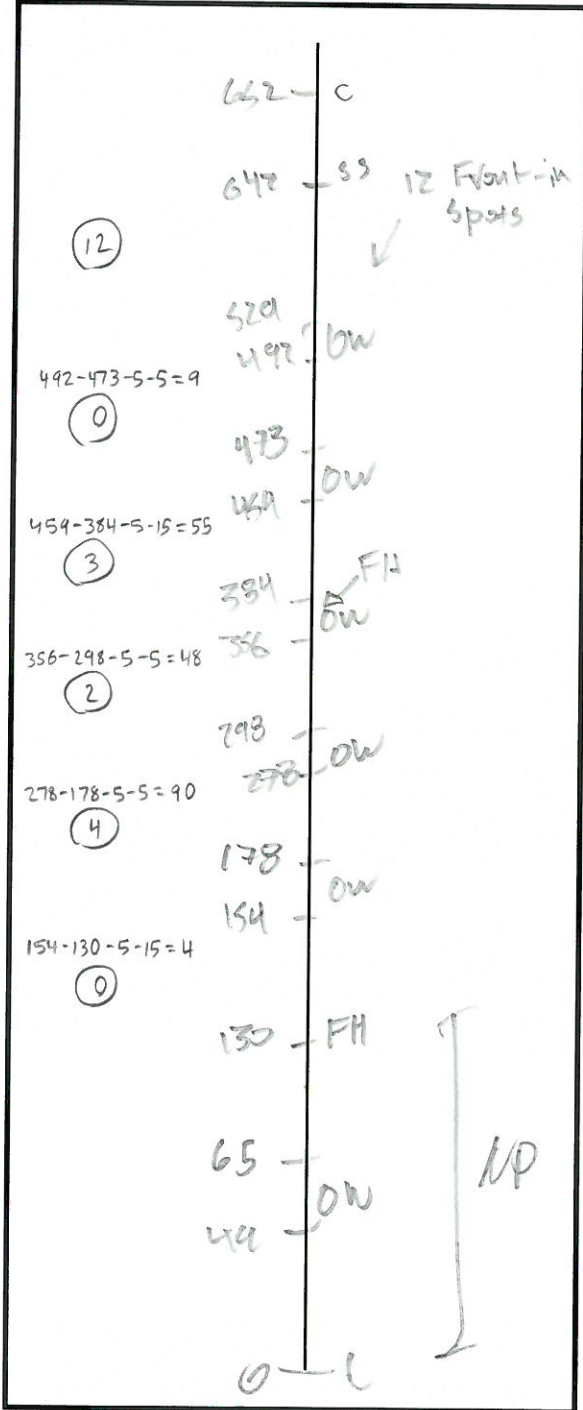 652 C
642 SS 12 Front-in
spots
12
529
492 DW
492-473-5-5=9
0
473
DW
459
459-384-5-15=55
3
FH
384
DW
356
356-298-5-5=48
2
298
DW
278
278-178-5-5=90
4
178
DW
154
154-130-5-15=4
0
130 FH
NP
65
DW
49
0 C